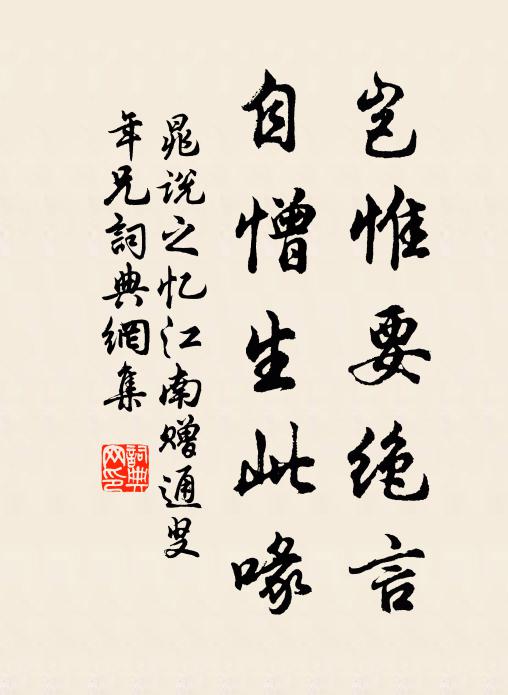 岂惟要绝言
自憎生此喙
晁说之忆江南赠通叟
年兄詞典網集
詞典
网印